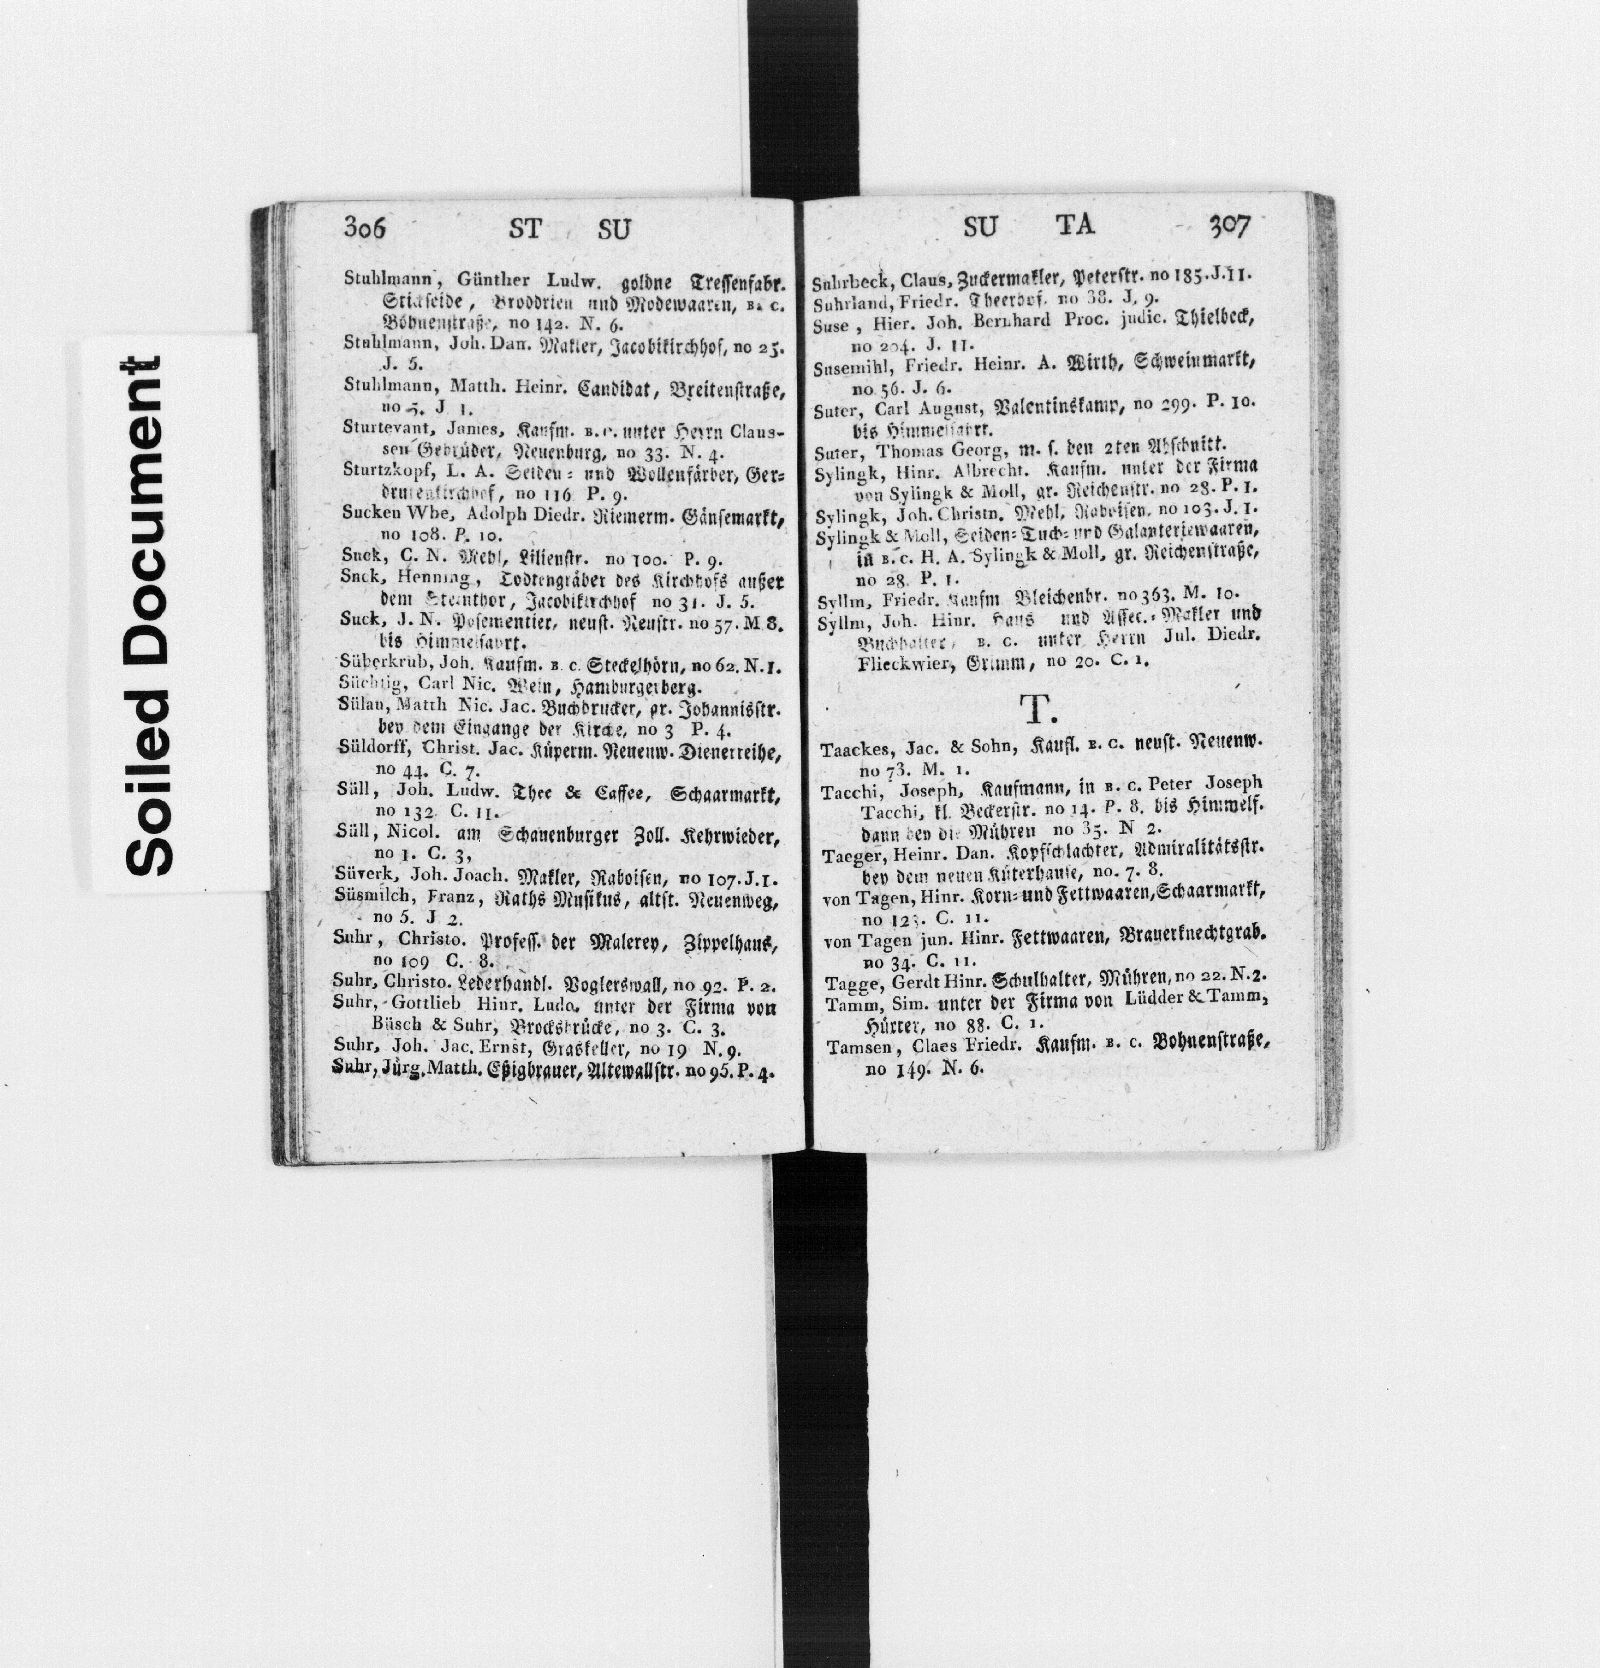 Soiled Document
306 ST SU
Stuhlmann, Günther Ludw. goldne Tressenfabr.
Stickseide, Broddrien und Modewaaren, B. C.
Böhnenstraße, no 142. N. 6.
Stuhlmann, Joh. Dan. Makler, Jacobikirchhof, no 25.
J. 5.
Stuhlmann, Matth. Heinr. Candidat, Breitenstraße,
no 5. J 1.
Sturtevant, James, Kaufm. B. C. unter Herrn Claus-
sen Gebrüder, Neuenburg, no 33. N. 4.
Sturtzkopf, L. A. Seiden- und Wollenfärber, Ger-
drutenkirchhof, no 116 P. 9.
Sucken Wbe, Adolph Diedr. Riemerm. Gänsemarkt,
no 108. P. 10.
Suck, C. N. Mehl, Lilienstr. no 100. P. 9.
Suck, Henning, Todtengräber des Kirchhofs außer
dem Steinthor, Jacobikirchhof no 31. J. 5.
Suck, J. N. Posementier, neust. Neustr. no 57. M 8.
bis Himmelfahrt.
Süberkrub, Joh. Kaufm. B. C. Steckelhörn, no 62. N. 1.
Süchtig, Carl Nic. Wein, Hamburgerberg.
Sülau, Matth Nic. Jac. Buchdrucker, gr. Johannisstr.
bey dem Eingange der Kirche, no 3 P. 4.
Süldorff, Christ. Jac. Küperm. Neuenw. Dienerreihe,
no 44. C. 7.
Süll, Joh. Ludw. Thee & Caffee, Schaarmarkt,
no 132 C. 11.
Süll, Nicol. am Schauenburger Zoll. Kehrwieder,
no 1. C. 3,
Süverk, Joh. Joach. Makler, Raboisen, no 107. J. 1.
Süsmilch, Franz, Raths Musikus, altst. Neuenweg,
no 5. J 2.
Suhr, Christo. Profess. der Malerey, Zippelhaus,
no 109 C. 8.
Suhr, Christo. Lederhandl. Voglerswall, no 92. P. 2.
Suhr, Gottlieb Hinr. Ludo. unter der Firma von
Büsch & Suhr, Brocksbrücke, no 3. C. 3.
Suhr, Joh. Jac. Ernst, Graskeller, no 19 N. 9.
Suhr, Jürg. Matth. Eßigbrauer, Altewallstr. no 95. P. 4.
SU TA 307
Suhrbeck, Claus, Zuckermakler, Peterstr. no 185. J. 11.
Suhrland, Friedr. Theerhof. no 38. J, 9.
Suse, Hier. Joh. Bernhard Proc. judic. Thielbeck,
no 204. J. 11.
Susemihl, Friedr. Heinr. A. Wirth, Schweinmarkt,
no 56. J. 6.
Suter, Carl August, Valentinskamp, no 299. P. 10.
bis Himmelfahrt.
Suter, Thomas Georg, m. s. den 2ten Abschnitt.
Sylingk, Hinr. Albrecht. Kaufm. unter der Firma
von Sylingk & Moll, gr. Reichenstr. no 28. P. 1.
Sylingk, Joh. Christn. Mehl, Raboisen, no 103. J. 1.
Sylingk & Moll, Seiden- Tuch- und Galanteriewaaren,
in B. C. H. A. Sylingk & Moll, gr. Reichenstraße,
no 28 P. 1.
Syllm, Friedr. Kaufm Bleichenbr. no 363. M. 10.
Syllm, Joh. Hinr. Haus und Assec.- Makler und
Buchhalter, B. C. unter Herrn Jul. Diedr.
Flieckwier, Grimm, no 20. C. 1.
T.
Taackes, Jac. & Sohn, Kaufl. B. C. neust. Neuenw.
no 73. M. 1.
Tacchi, Joseph, Kaufmann, in B. C. Peter Joseph
Tacchi, kl. Beckerstr. no 14. P. 8. bis Himmelf.
dann bey die Mühren no 35. N 2.
Taeger, Heinr. Dan. Kopfschlachter, Admiralitätsstr.
bey dem neuen Küterhause, no. 7. 8.
von Tagen, Hinr. Korn- und Fettwaaren, Schaarmarkt,
no 123. C. 11.
von Tagen jun. Hinr. Fettwaaren, Brauerknechtgrab.
no 34. C. 11.
Tagge, Gerdt Hinr. Schulhalter, Mühren, no 22. N. 2.
Tamm, Sim. unter der Firma von Lüdder & Tamm,
Hürter, no 88. C. 1.
Tamsen, Claes Friedr. Kaufm. B. C. Bohnenstraße,
no 149. N. 6.